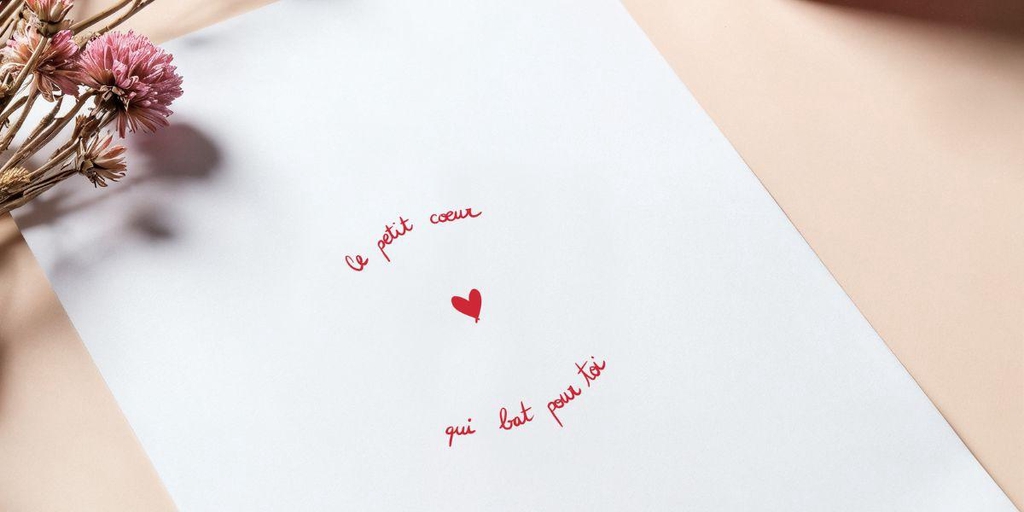 Ce petit cœur
qui bat pour toi